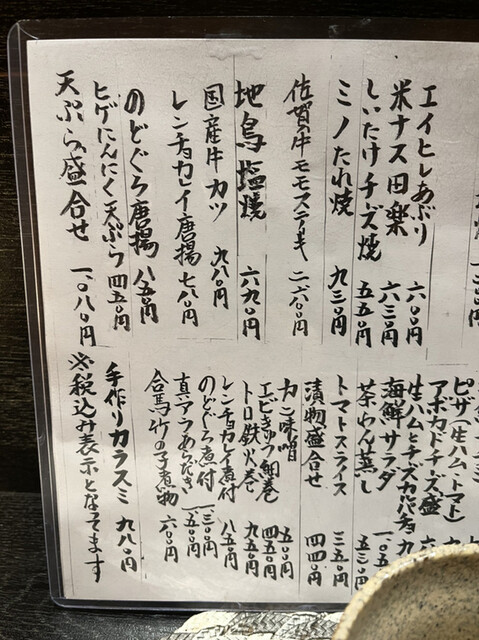 エイヒレあぶり 六〇〇円
米ナス田楽 六三〇円
しいたけチーズ焼 五五〇円
ミノたれ焼 九三〇円
佐賀牛モモステーキ 二二六〇〇円
地鳥塩焼 六九〇円
国産牛カツ 九八〇円
レンチョカレイ唐揚 七八〇円
のどぐろ唐揚 八五〇円
ヒゲにんにく天ぷら 四五〇円
天ぷら盛合せ 一、〇八〇円
ピザ(生ハムトマト)
アボカドチーズ盛 六
生ハムとチーズカルパッチョ 九
海鮮サラダ 一、〇五
茶わん蒸し 五三〇円
トマトスライス 三五〇円
漬物盛合せ 四四〇円
カニ味噌 五〇〇円
エビきゅう細巻 四五〇円
トロ鉄火巻 九五〇円
レンチョカレイ煮付 八五〇円
のどぐろ煮付 一、一三〇円
真アラあらだき 一、五〇〇円
合馬竹の子煮物 六〇〇円
手作りカラスミ 九八〇円
※税込み表示となってます